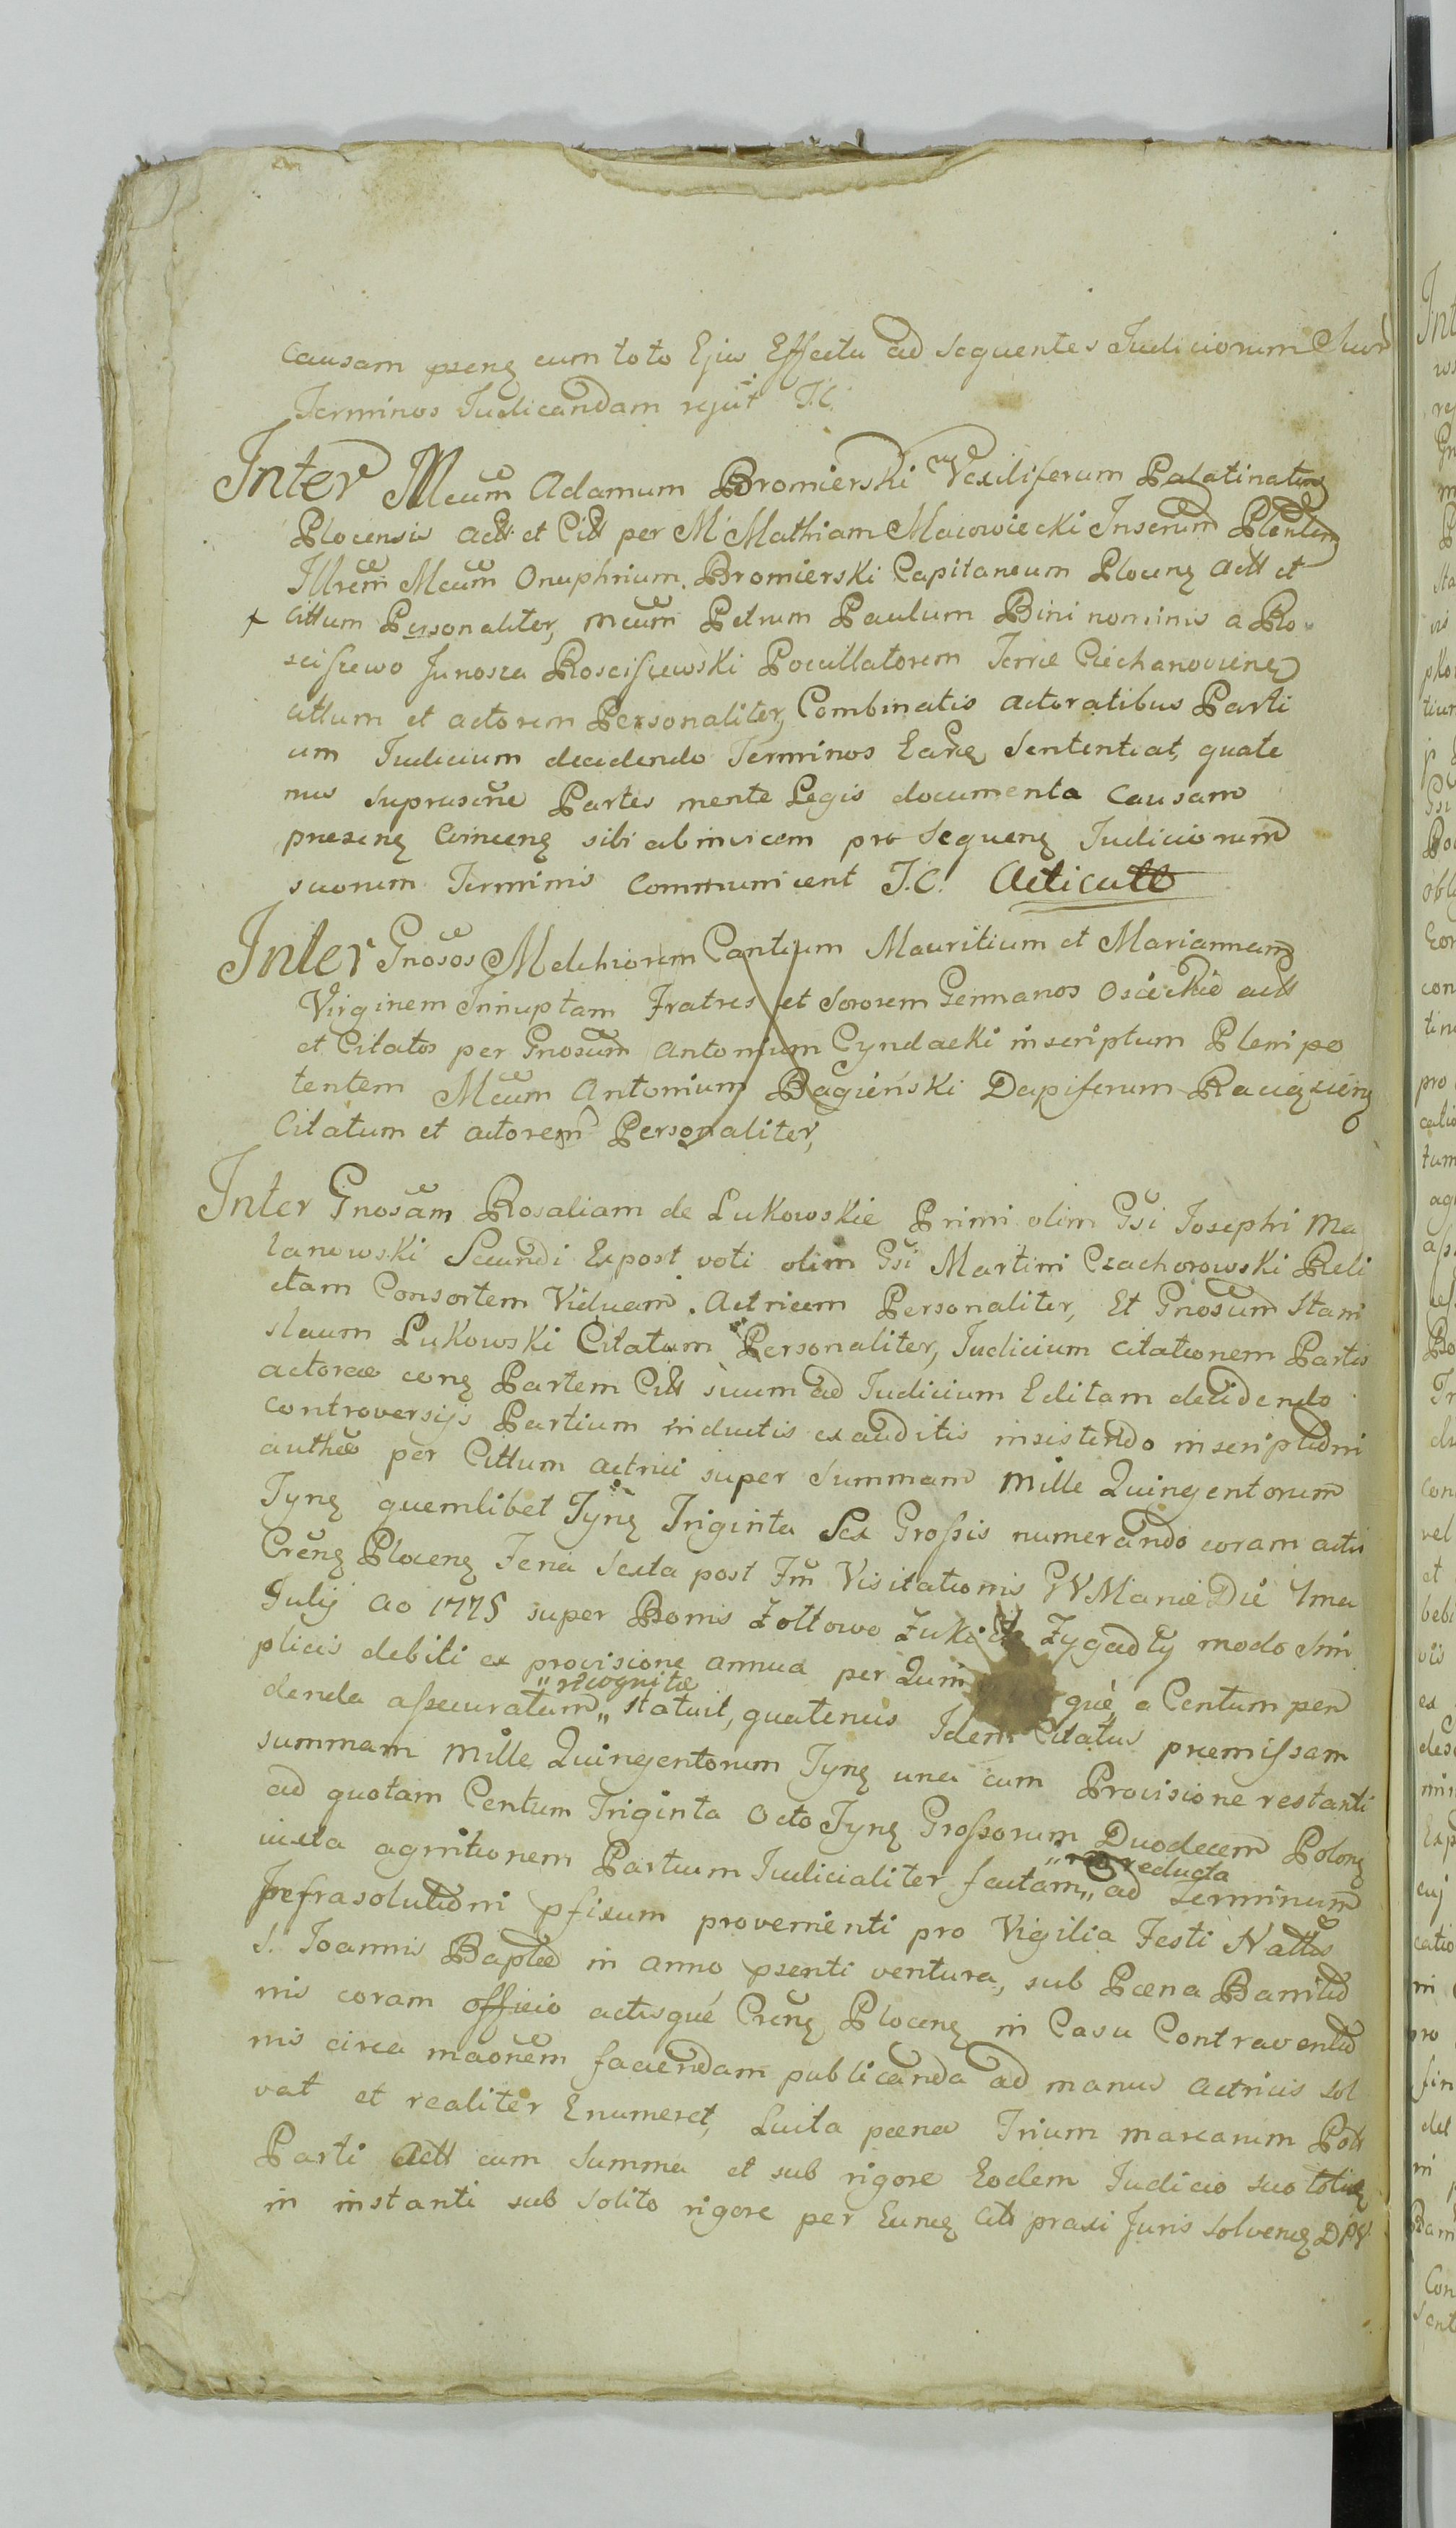 causam psenꝫ cum toto Ejus Effectu ad sequentes Judiciorum Suor
Terminos Judicandam rejiit J.C.
Inter Mcum Adamum Bromierski Vexiliferum Palatinatus
Plocensis Act et Citt per M Mathiam Macowiecki Inserum Plentem
Illrem Mcum Onuphrium Bromierski Capitaneum Plocenꝫ Actt et
Cittum Personaliter, Mcum Petrum Paulum Bini nominis a Ro
sciszewo Junosza Rosciszewski Pocillatorem Terræ Ciechanoviene
Cittum et actorem Personaliter, Combinatis actoratibus Parti
um Judicium decidendo Terminos Eaꝫ Sententiat, quate
nus suprascrie Partes mente Legis documenta causam
presenꝫ concernꝫ sibi ab invicem pro Sequenꝫ Judiciorum
suorum Terminis communicent J.C. Acticatt
Inter Gnosos Melchiorem Cantium Mauritium et Mariannam
Virginem Innuptam Fratres et Sororem Germanos Osieckie actt
et Citatos per Gnosum Antonium Cyndacki inscriptum Plenipo
tentem Mcum Antonium Bagieński Dapiferum Raciązienꝫ
Citatum et actorem Personaliter,
Inter Gnosam Rosaliam de Lukowskie Primi olim Gsi Josephi Ma
lanowski Secundi Expost voti olim Gsi Martini Czachorowski Reli
ctam Consortem Viduam Actricem Personaliter, Et Gnosum Stani
slaum Lukowski Citatum Personaliter, Judicium citationem Partis
actoreæ conꝫ Partem Citt suum ad Judicium Editam decidendo
controversijs Partium inductis exauditis insistendo inscriptioni
authæ per Cittum actrici super Summam Mille Quingentorum
Tynꝫ quemlibet Tynꝫ Triginta Sex Grossis numerando coram actis
Crenꝫ Plocenꝫ Feria Sexta post Fm Visitationis BV Mariæ Die 7ma
Julij Ao 1775 super Bonis Zoltowo Zuki et Zygadly modo Sim
plicis debiti ex provisione annua per Quin que a Centum pen
denda assecuratam „ statuit, quatenus Idem Citatus præmissam
„ recognitæ
summam Mille Quingentorum Tynꝫ una cum Provisione restanti
ad quotam Centum Triginta Octo Tynꝫ Grossorum Duodecem Polonꝫ
iuxta agnitionem Partium Judicialiter factam „ ad Terminum
„ reducta
Infrasolutioni pfixum provenienti pro Vigilia Festi Nattis
S. Joannis Baptæ in anno psenti ventura, sub Pœna Bannitio
nis coram officio actisque Crenꝫ Plocenꝫ in Casu Contraventio
nis circa maonem faciendam publicanda ad manus Actricis Sol
vat et realiter Enumeret, Luita pœna Trium marcarum Poll
Parti Actt cum Summa et sub rigore Eodem Judicio suo totid
in instanti sub solito rigore per Eunꝫ Citt praxi Juris solvenꝫ DPV